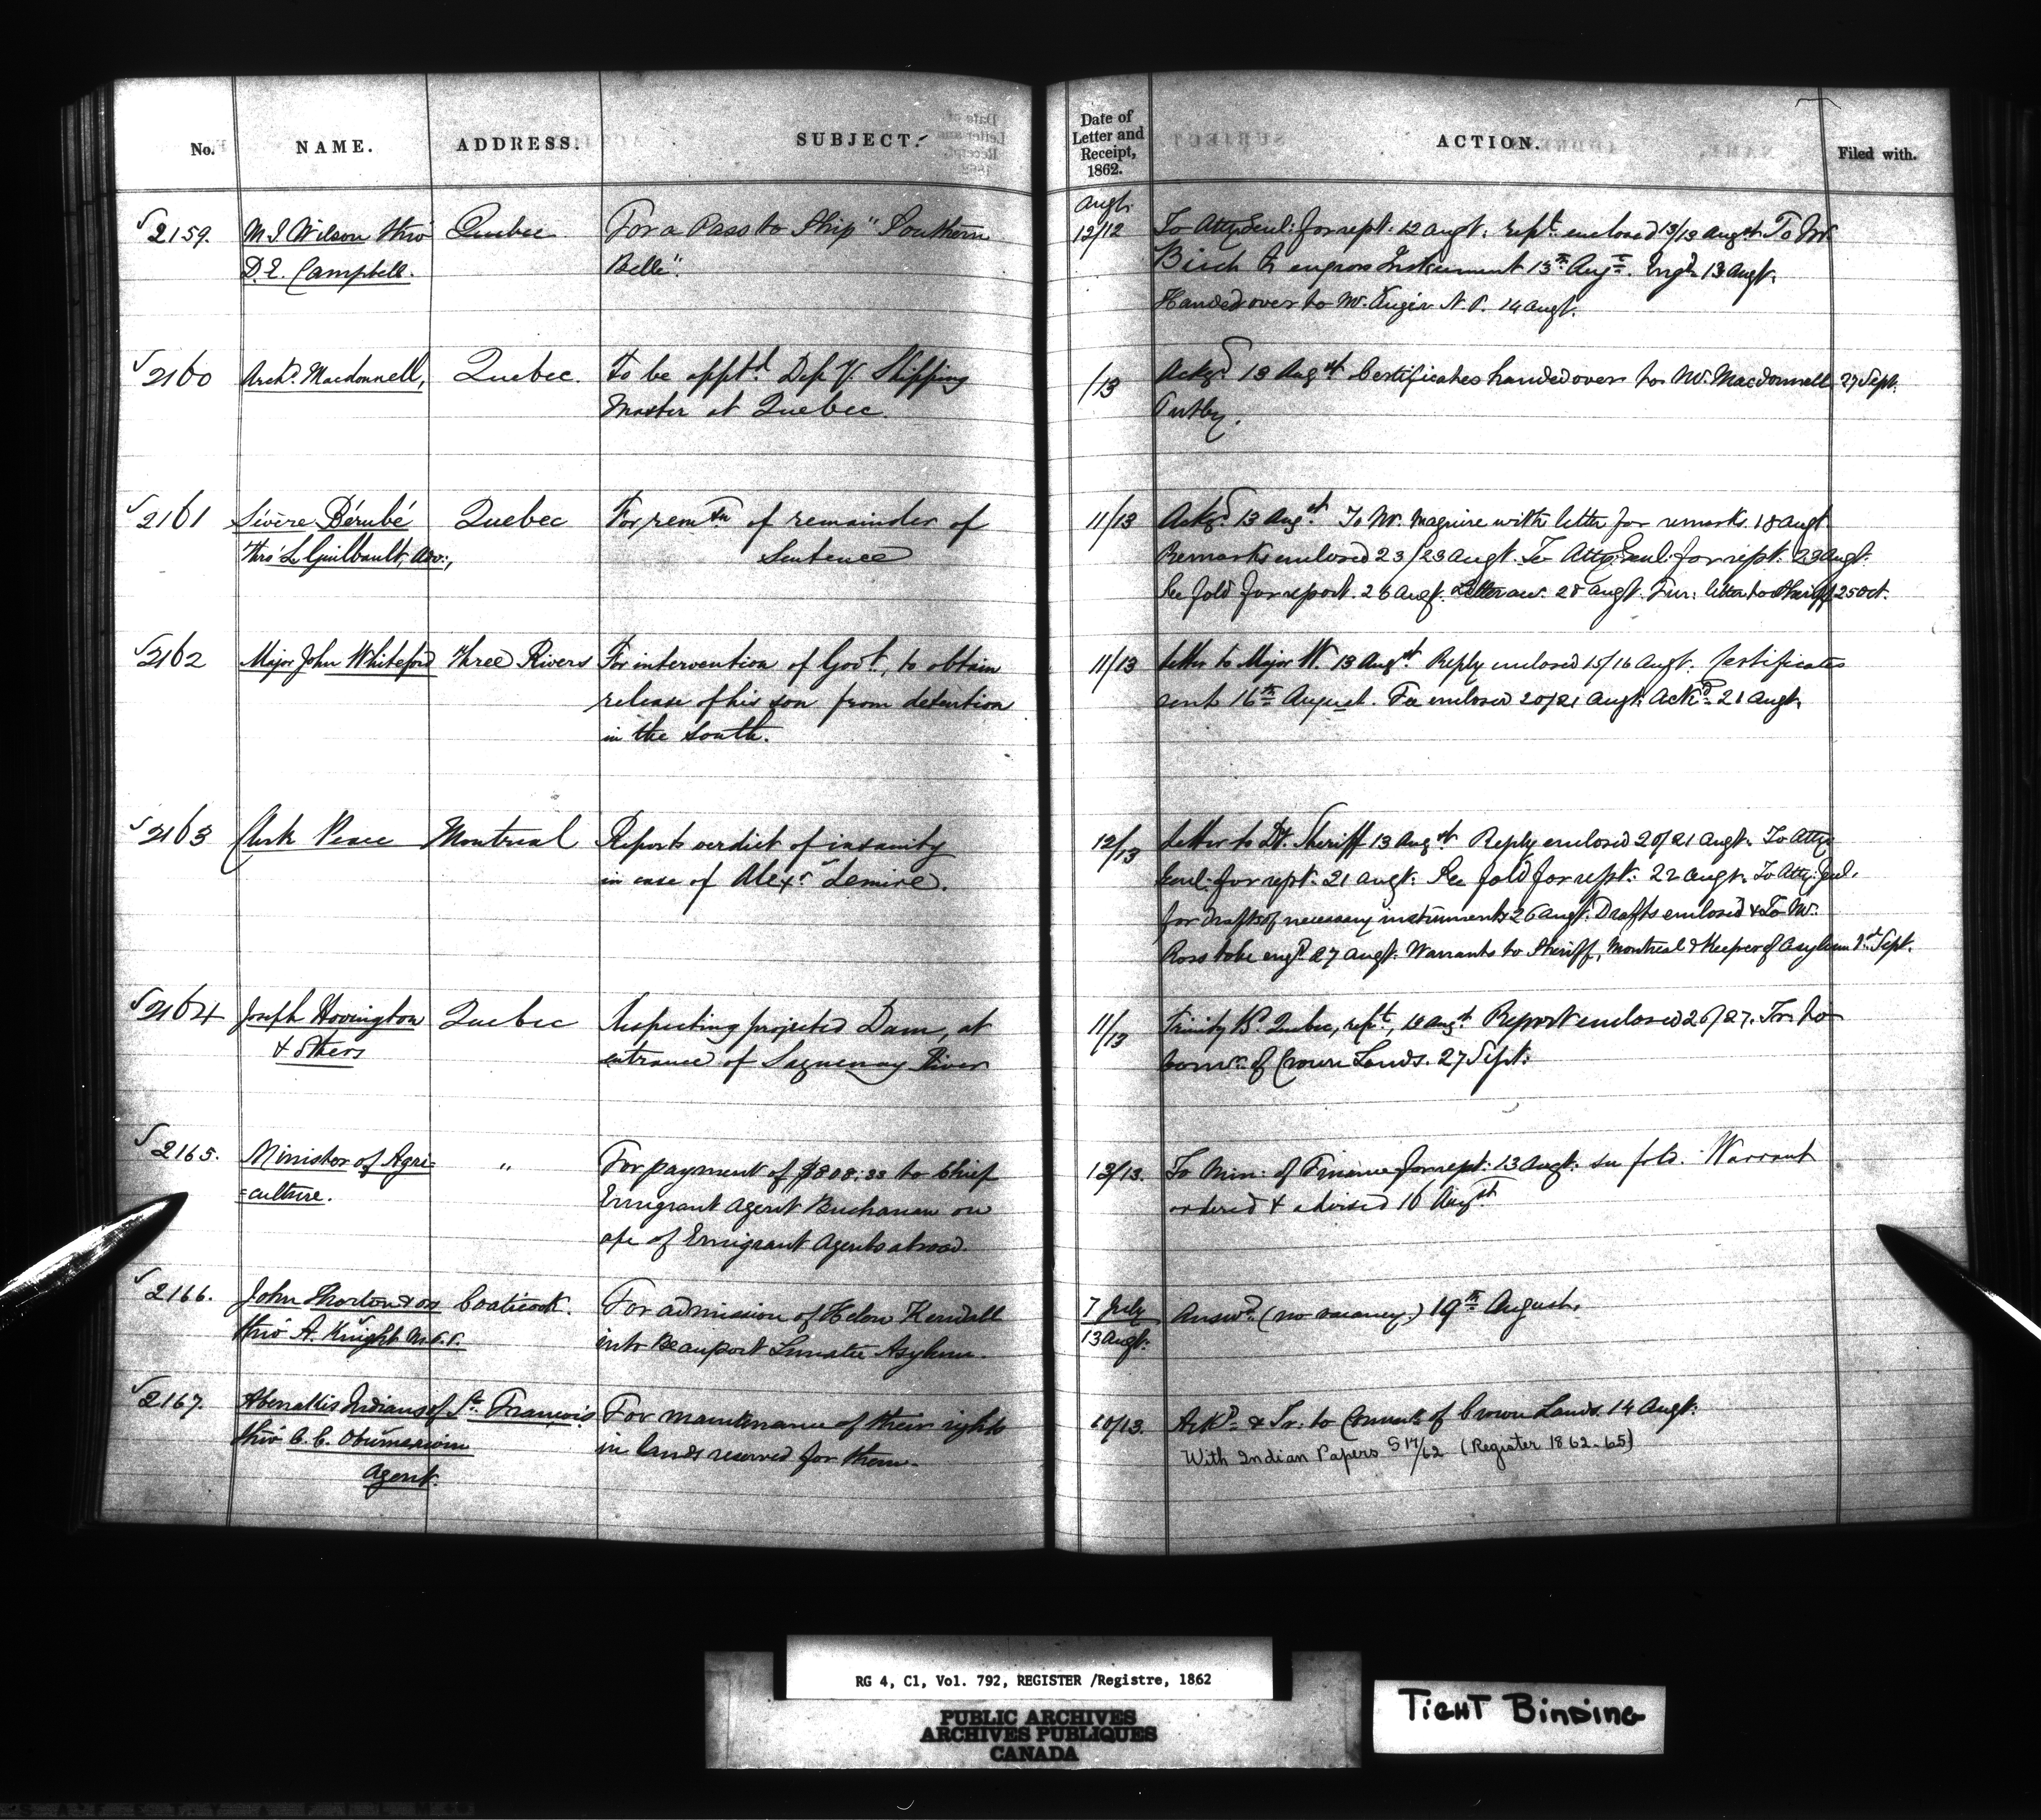 No. NAME. ADDRESS. SUBJECT. Date of Letter and Receipt, 1862. ACTION. Filed with.
2159. M I Wilson thro' Quebec For a Pass to Ship "Southern
D. E. Campbell. Belle".
Augt.
12/12 To Atty Genl: for rept. 12 augt. rept. enclosed 13/13 augst. To Mr.
Birch to engross Instrument 13th Augt. Engd. 13 augt.
Handed over to Mr. Augér N. P. 14 augt.
2160 Archd. Macdonnell, Quebec. To be apptd. Dep y. Shipping
Master at Quebec.
/13 Ackgd. 13 Augst. Certificates handed over to Mr. Macdonnell 27 Sept.
2161 Sévère Bérubé Quebec For remtn of remainder of
thro' L Guilbault, Adv:, Sentence
11/13 Ackgd. 13 Augst. To Mr. Maguire with letter for remarks. 18 augt.
Remarks enclosed 23/23 augt. To Atty: Genl: for rept: 23 augt.
See fold for report. 26 augt. Letter an. 28 augt. Fur: letter to Sheriff 25 Oct.
2162 Major John Whiteford Three Rivers For intervention of Govt., to obtain
release of his son from detention
in the South.
11/13 Letter to Major W. 13 Augst. Reply enclosed 15/16 augt. Certificates
sent 16th August. Fee enclosed 20/21 augt. Ackd. 21 augt.
2163 Clerk Peace Montreal Reports verdict of insanity
in case of Alexr. Lemire.
12/13 Letter to Dt. Sheriff 13 Augst. Reply enclosed 20/21 augt. To Atty:
Genl: for rept: 21 augt: See fold for rept: 22 augt. To Atty: Genl.
for drafts of necessary instruments 26 augt: Drafts enclosed & To Mr.
Ross to be engd. 27 augt. Warrants to Sheriff, Montreal & Keeper of Asylum Sept.
2164 Joseph Hovington Quebec Respecting projected Dam, at
& others entrance of Saguenay River
11/13 Trinity Ho. Quebec, rept., 13 augst. Report enclosed 26/27. Tr. to
Comr. of Crown Lands. 27 Sept:
2165. Minister of Agri= " For payment of $808.33 to Chief
=culture. Emigrant Agent Buchanan on
a/c of Emigrant Agents abroad.
12/13. To Min: of Finance for rept: 13 augt: see fold. Warrant
ordered & advised 16 Augst.
2166. John Thorton & os Coaticook. For admission of Helen Kendall
thro' A. Knight M.P.P. into Beauport Lunatic Asylum.
7 July
13 Augt: Answd. (no vacancy) 19th August.
2167. Abenakis Indians of St. François For maintenance of their rights
thro' in lands reserved for them.
Agent.
10/13. Ackd. & Tr: to Commr. of Crown Lands. 14 Augt:
With Indian Papers S 17/62 (Register 1862-65)
RG 4, C1, Vol. 792, REGISTER /Registre, 1862
PUBLIC ARCHIVES
ARCHIVES PUBLIQUES
CANADA
TIGHT BINDING